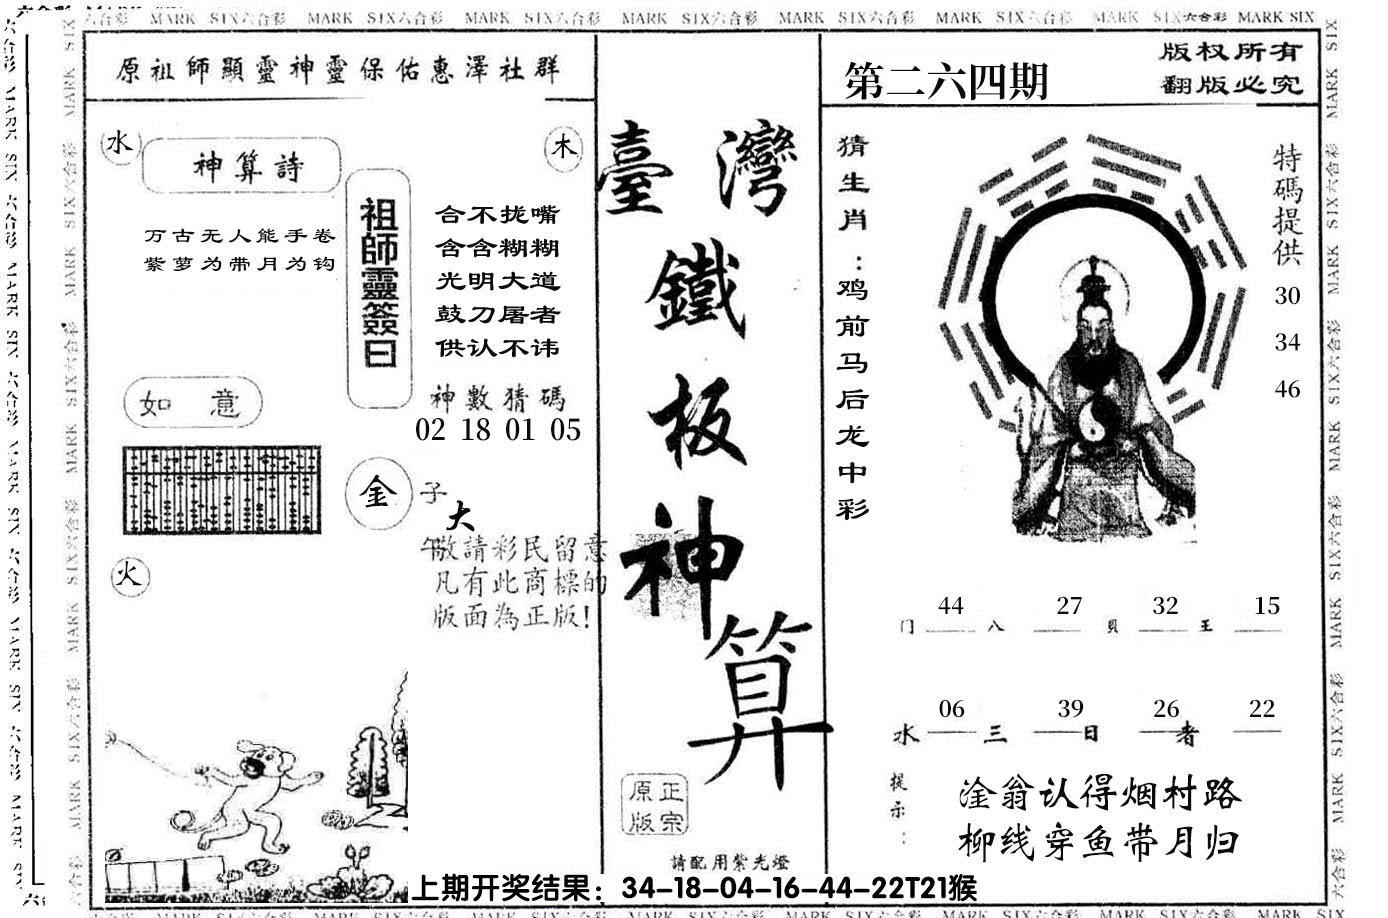 MARK SIX六合彩 MARK SIX六合彩 MARK SIX六合彩 MARK SIX六合彩 MARK SIX六合彩 MARK SIX六合彩 MARK SIX六合彩 MARK SIX
原祖師顯靈神靈保佑惠澤社群
水
神算詩
木
万古无人能手卷
紫萝为带月为钩
祖師靈簽曰
合不拢嘴
含含糊糊
光明大道
鼓刀屠者
供认不讳
神數猜碼
02 18 01 05
如意
金
子
大
午敬請彩民留意
凡有此商標的
版面為正版!
火
臺灣
鐵
板
神
算
原正
版宗
請配用紫光燈
第二六四期
版权所有
翻版必究
猜生肖：鸡前马后龙中彩
特碼提供
30
34
46
44 27 32 15
门 八 貝 王
06 39 26 22
水 三 日 者
提示：
淦翁认得烟村路
柳线穿鱼带月归
上期开奖结果：34-18-04-16-44-22T21猴